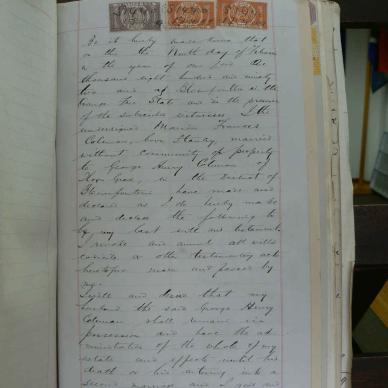 Be it hereby made known that
on this the Ninth day of
in the year of our Lord One
thousand eight hundred and ninety
two and at Bloemfontein in the
Orange Free State and in the presence
of the subscribed witnesses I the
undersigned Marion Frances
Coleman, born Stanley, married
without community of property
to George Henry Coleman of
in the District of
Bloemfontein have made and
declared as I do hereby make
and declare the following to
be my last will and testament
I revoke and annul all wills
codicils or other testamentary acts
heretofore made and passed by
me.
I will and desire that my
husband the said George Henry
Coleman shall remain in
possession and have the ad
ministration of the whole of my
estate and effects until his
death or his entering into a
second marriage and I give and